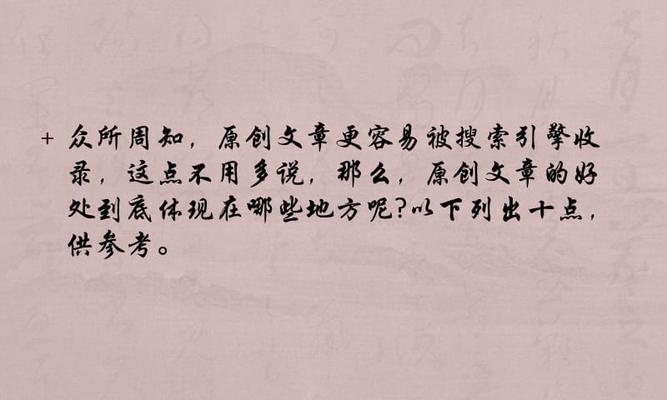 + 众所周知，原创文章更容易被搜索引擎收
录，这点不用多说，那么，原创文章的好
处到底体现在哪些地方呢?以下列出十点，
供参考。